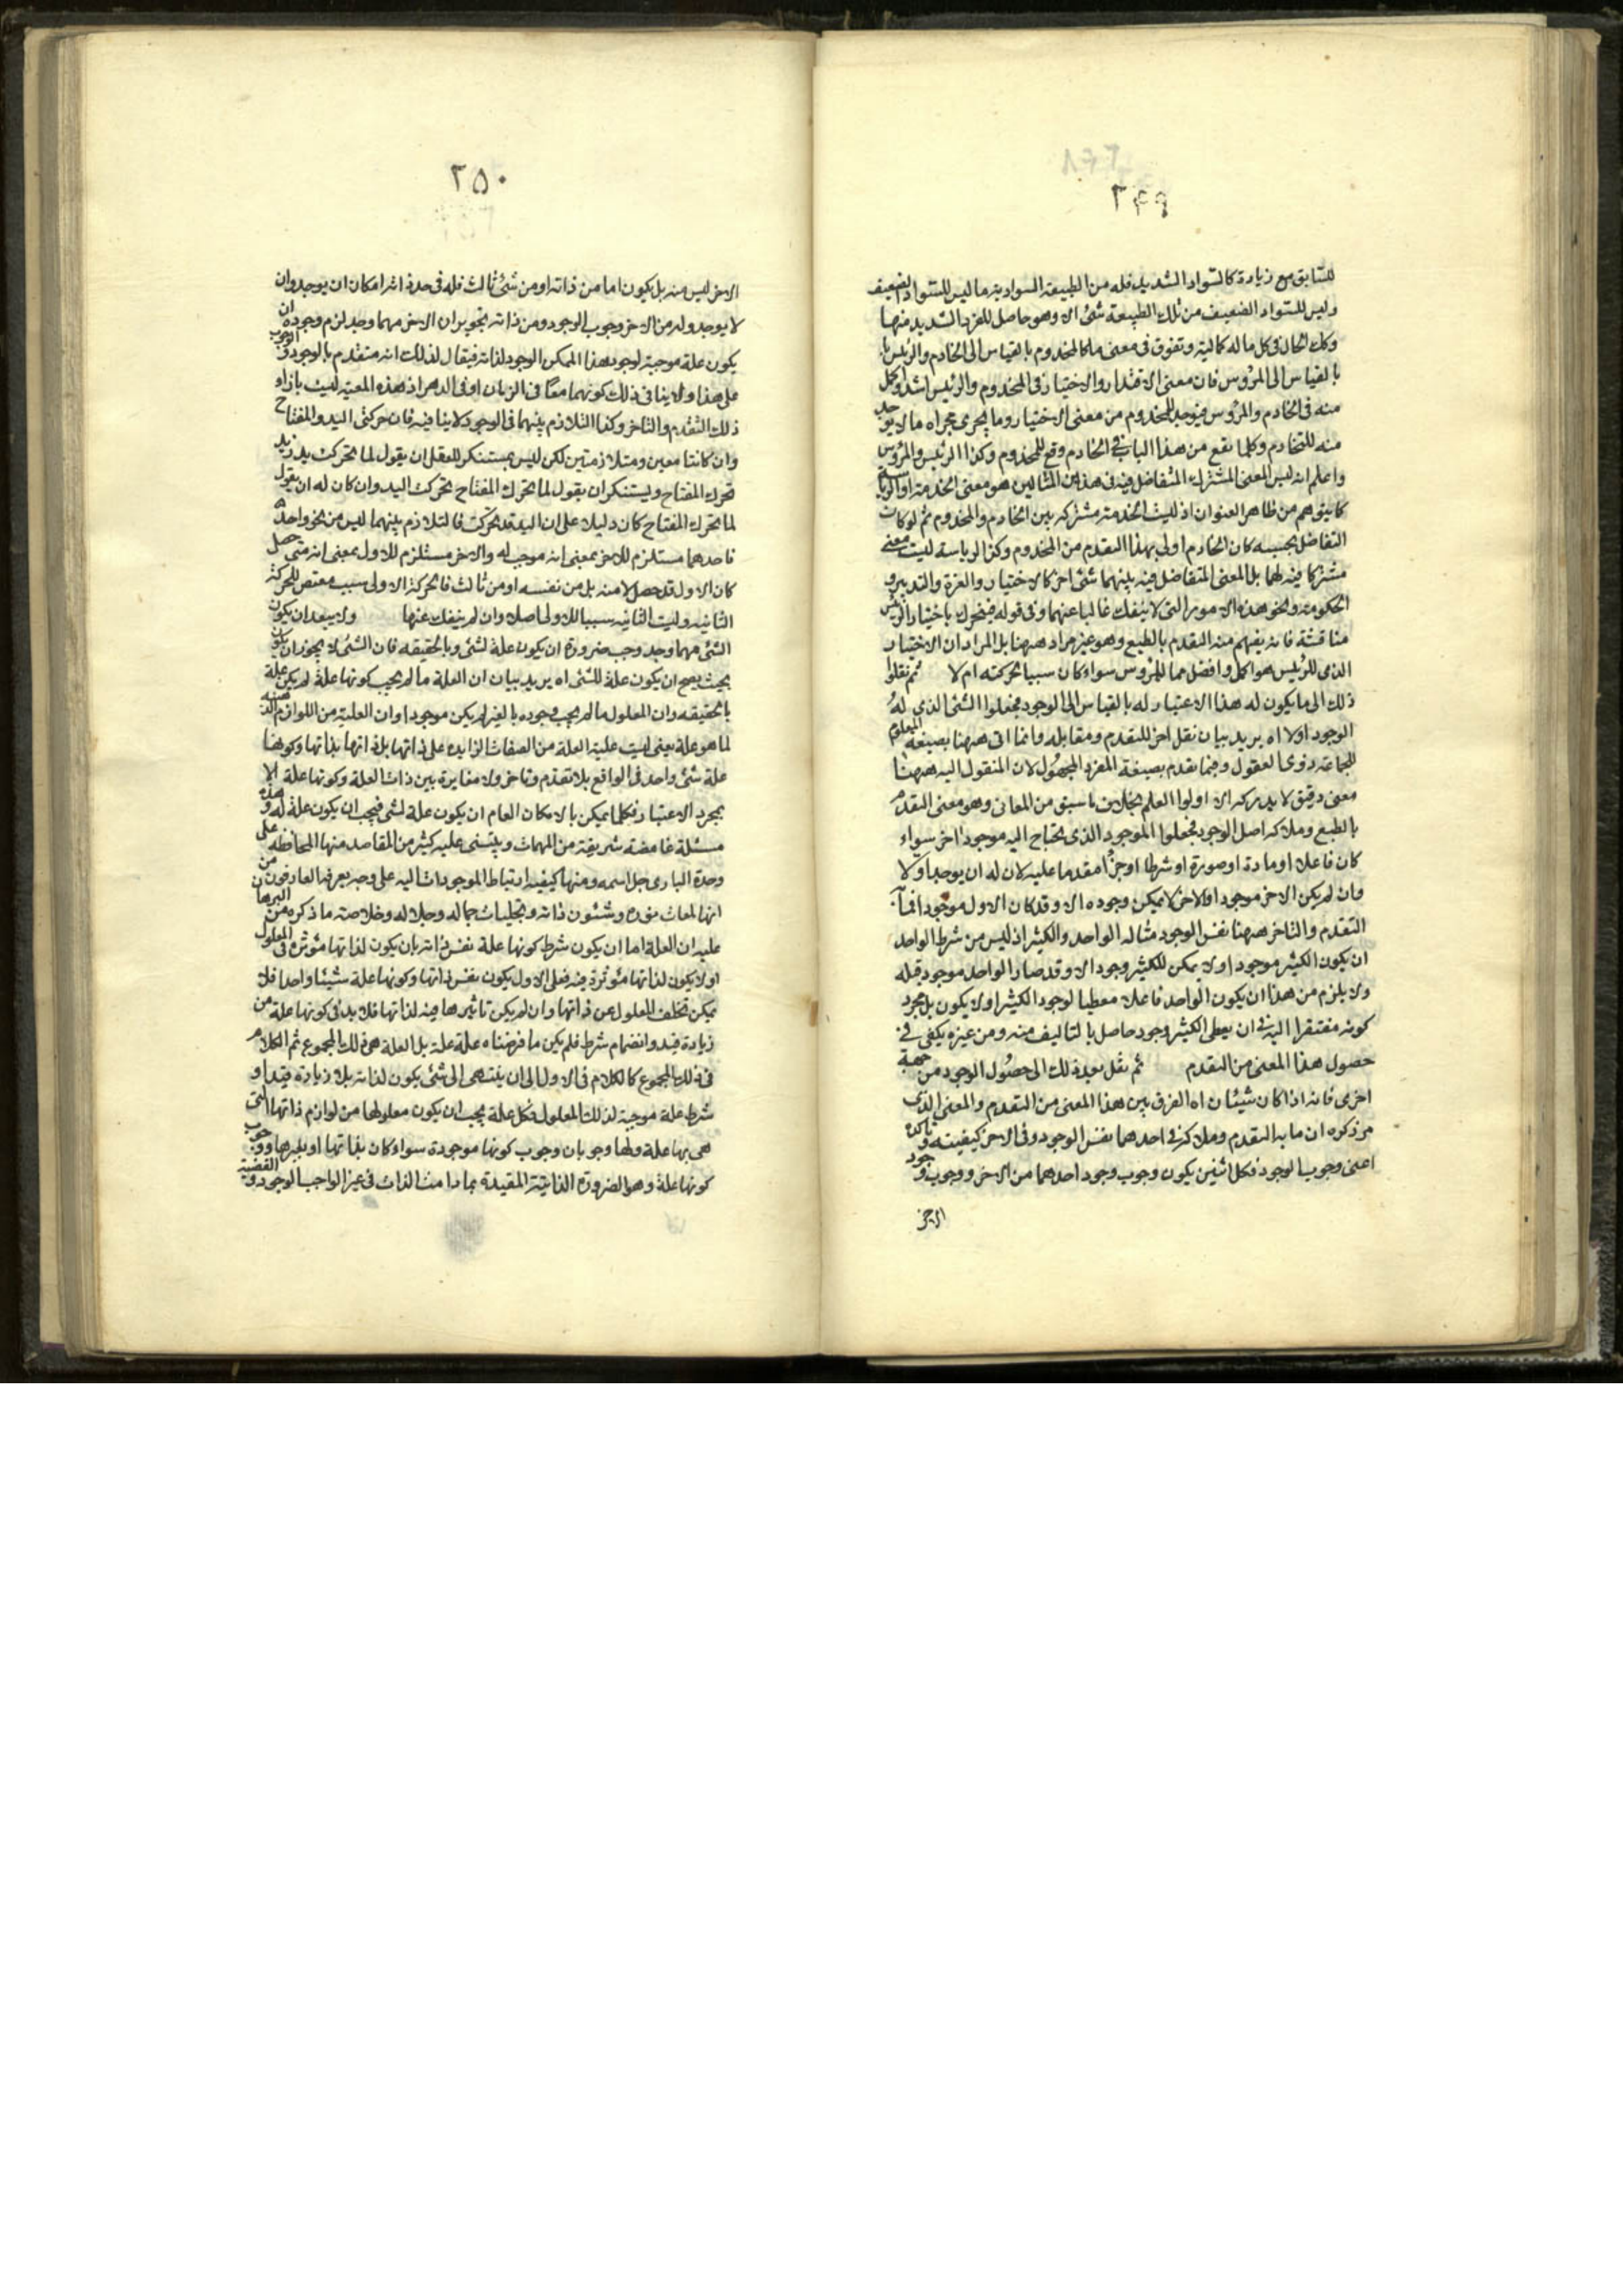 ٢٤٩
للسابق مع زيادة كالسواد الشديد فله من الطبيعة السوادية ما ليس للسواد الضعيف
وليس للسواد الضعيف من تلك الطبيعة شئ الا وهو حاصل للفرد الشديد منها
وكك الحال فى كل ما له كمالية وتفوق فى معنى ما كالمخدوم بالقياس الى الخادم والرئيس
بالقياس الى المرؤس فان معنى الاقتدار والاختيار فى المخدوم والرئيس اشد واكمل
منه فى الخادم والمرؤس فيوجد للمخدوم من معنى الاختيار وما يجرى مجراه ما لا يوجد
منه للخادم وكلما يقع من هذا الباب فى الخادم وقع للمخدوم وكذا الرئيس والمرؤس
واعلم انه ليس المعنى المشترك المتفاضل فيه فى هذين المثالين هو معنى الخدمة او الرياسة
كما يتوهم من ظاهر العنوان اذ ليست الخدمة مشتركه بين الخادم والمخدوم ثم لو كانت
التفاضل بحسبه كان الخادم اولى بهذا التقدم من المخدوم وكذا الرياسة ليست معنى
مشتركا فيه لهما بل المعنى المتفاضل فيه بينهما شئ اخر كالاختيار والعزة والتدبير و
الحكومة ونحو هذه الامور التى لا ينفك غالبا عنهما وفى قوله فيتحرك باختيار الرئيس
مناقشة فانه يفهم منه التقدم بالطبع وهو غير مراد ههنا بل المراد ان الاختيار
الذى للرئيس هو اكمل وافضل مما للمرؤس سواء كان سببا لحركته ام لا ثم نقلوا
ذلك الى ما يكون له هذا الاعتبار له بالقياس الى الوجود فجعلوا الشئ الذى له
الوجود اولا اه يريد بيان نقل اخر للتقدم ومقابله وانما اتى ههنا بصيغة المعلوم
للجماعة ذوى العقول وفيما تقدم بصيغة المفرد المجهول لان المنقول اليه ههنا
معنى دقيق لا يدركه الا اولوا العلم بخلاف ما سبق من المعانى وهو معنى التقدم
بالطبع وملاكه اصل الوجود فجعلوا الموجود الذى يحتاج اليه موجود اخر سواء
كان فاعلا او مادة او صورة او شرطا او جزأ مقدما عليه لان له ان يوجد اولا
وان لم يكن الاخر موجودا والاخر لا يمكن وجوده الا وقد كان الاول موجودا فما
التقدم والتاخر ههنا نفس الوجود مثاله الواحد والكثير اذ ليس من شرط الواحد
ان يكون الكثير موجودا ولا يمكن للكثير وجود الا وقد صار الواحد موجود قبله
ولا يلزم من هذا ان يكون الواحد فاعلا معطيا لوجود الكثير او لا يكون بل مجرد
كونه مفتقرا اليه فى ان يعطى الكثير وجود حاصل بالتاليف منه ومن غيره يكفى فى
حصول هذا المعنى من التقدم ثم نقل بعد ذلك الى حصول الوجود من جهة
اخرى فانه اذا كان شيئان اه الفرق بين هذا المعنى من التقدم والمعنى الذى
مر ذكره ان ما به التقدم وملاكه فى احدهما نفس الوجود وفى الاخر كيفيته و تاكده
اعنى وجوب الوجود فكل اثنين يكون وجوب وجود احدهما من الاخر ووجوب وجود
الاخر
٢٥٠
الاخر ليس منه بل يكون اما من ذاته او من شئ ثالث فله فى حد ذاته امكان ان يوجد وان
لا يوجد وله من الاخر وجوب الوجود ومن ذاته يجوز ان الاخر مهما وجد لزم وجوده ان
يكون علة موجبة لوجود هذا الممكن الوجود لذاته فيقال لذلك انه متقدم بالوجود
على هذا ولا ينافى ذلك كونهما معًا فى الزمان او فى الدهر اذ هذه المعية ليست بازاء
ذلك التقدم والتاخر وكذا التلازم بينهما فى الوجود لا ينافيه فان حركتى اليد والمفتاح
وان كانتا معين ومتلازمتين لكن ليس بمستنكر للعقل ان يقول لما تحركت يد زيد
تحرك المفتاح ويستنكر ان يقول لما تحرك المفتاح تحركت اليد وان كان له ان يقول
لما تحرك المفتاح كان دليلا على ان اليد قد تحركت فالتلازم بينهما ليس من نحو واحد
فاحدهما مستلزم للاخر بمعنى انه موجب له والاخر مستلزم للاول بمعنى انه متى حصل
كان الاول قد حصل لا منه بل من نفسه او من ثالث فالحركة الاولى سبب مقتض للحركة
الثانيه وليست الثانيه سببا للاولى اصلا وان لم ينفك عنها ولا يبعد ان يكون
الشئ مهما وجد وجب ضرورة ان يكون علة لشئ وبالحقيقه فان الشئ لا يجوز ان يكون
بحيث يصح ان يكون علة للشئ اه يريد بيان ان العلة ما لم يجب كونها علة لم يكن علة
بالحقيقه وان المعلول ما لم يجب وجوده بالغير لم يكن موجودا وان العلية من اللوازم
لما هو علة يعنى ليست علية العلة من الصفات الزايده على ذاتها بل ذاتها بذاتها وكونها
علة شئ واحد فى الواقع بلا تقدم وتاخر ولا مغايرة بين ذات العلة وكونها علة الا
بمجرد الاعتبار فكلما يمكن بالامكان العام ان يكون علة لشئ فيجب ان يكون علة له وهذه
مسئلة غامضة شريفة من المهمات ويبتنى عليه كثير من المقاصد منها المحافظه على
وحدة البارى جل اسمه ومنها كيفيه ارتباط الموجودات اليه على وجه يعرفها العارفون من
انها لمعات نوره وشئون ذاته وتجليات جماله وجلاله وخلاصة ما ذكره من البرهان
عليه ان العلة اما ان يكون شرط كونها علة نفس ذاته بان يكون لذاتها مؤثرة فى المعلول
او لا يكون لذاتها مؤثرة فيه فعلى الاول يكون نفس ذاتها وكونها علة شيئا واحدا فلا
يمكن تخلف المعلول عن ذاتها وان لم يكن تاثيرها فيه لذاتها فلا بد فى كونها علة من
زيادة قيد وانضمام شرط فلم يكن ما فرضناه علة علة بل العلة هى ذلك المجموع ثم الكلام
فى ذلك المجموع كالكلام فى الاول الى ان ينتهى الى شئ يكون لذاته بلا زيادة قيد او
شرط علة موجبة لذلك المعلول فكل علة يجب ان يكون معلولها من لوازم ذاتها التى
هى بها علة ولها وجوبان وجوب كونها موجودة سواء كان بذاتها او بغيرها ووجوب
كونها علة وهو الضرورة الذاتية المقيدة بما دامت الذات فى غير الواجب الوجود و القضية